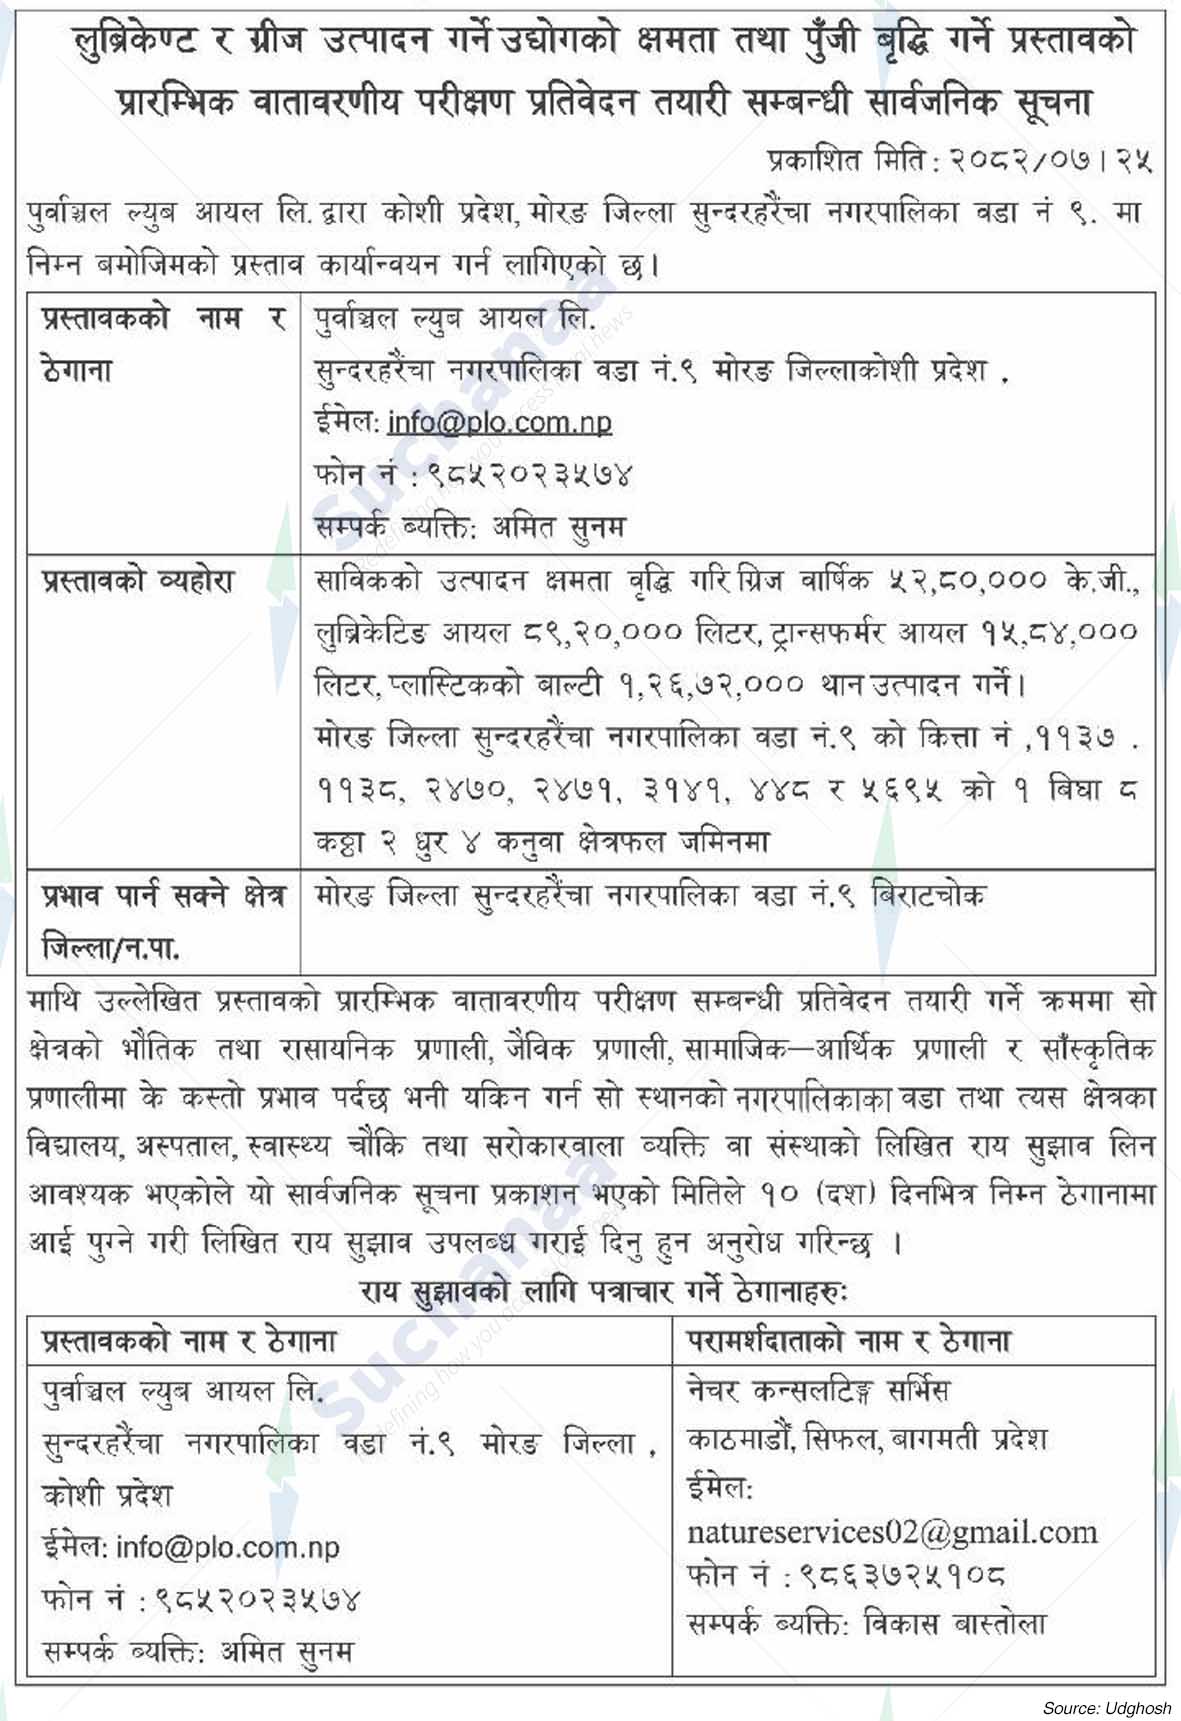 लुब्रिकेण्ट र ग्रीज उत्पादन गर्ने उद्योगको क्षमता तथा पुँजी बृद्धि गर्ने प्रस्तावको
प्रारम्भिक वातावरणीय परीक्षण प्रतिवेदन तयारी सम्बन्धी सार्वजनिक सूचना
प्रकाशित मिति : २०८२/०७।२५
पुर्वाञ्चल ल्युब आयल लि. द्वारा कोशी प्रदेश, मोरङ जिल्ला सुन्दरहरैंचा नगरपालिका वडा नं ९. मा
निम्न बमोजिमको प्रस्ताव कार्यान्वयन गर्न लागिएको छ।
प्रस्तावकको नाम र
ठेगाना
पुर्वाञ्चल ल्युब आयल लि.
सुन्दरहरैंचा नगरपालिका वडा नं.९ मोरङ जिल्लाकोशी प्रदेश .
ईमेल: info@plo.com.np
फोन नं : ९८५२०२३५७४
सम्पर्क ब्यक्ति: अमित सुनम
प्रस्तावको व्यहोरा
साविकको उत्पादन क्षमता वृद्धि गरि ग्रिज वार्षिक ५२,८०,००० के.जी.,
लुब्रिकेटिङ आयल ८९,२०,००० लिटर, ट्रान्सफर्मर आयल १५,८४,०००
लिटर, प्लास्टिकको बाल्टी १,२६,७२,००० थान उत्पादन गर्ने।
मोरङ जिल्ला सुन्दरहरैंचा नगरपालिका वडा नं.९ को कित्ता नं ,११३७ .
११३८, २४७०, २४७१, ३१४१, ४४८ र ५६९५ को १ बिघा ८
कठ्ठा २ धुर ४ कनुवा क्षेत्रफल जमिनमा
प्रभाव पार्न सक्ने क्षेत्र
जिल्ला/न.पा.
मोरङ जिल्ला सुन्दरहरैंचा नगरपालिका वडा नं.९ बिराटचोक
माथि उल्लेखित प्रस्तावको प्रारम्भिक वातावरणीय परीक्षण सम्बन्धी प्रतिवेदन तयारी गर्ने क्रममा सो
क्षेत्रको भौतिक तथा रासायनिक प्रणाली, जैविक प्रणाली, सामाजिक—आर्थिक प्रणाली र साँस्कृतिक
प्रणालीमा के कस्तो प्रभाव पर्दछ भनी यकिन गर्न सो स्थानको नगरपालिकाका वडा तथा त्यस क्षेत्रका
विद्यालय, अस्पताल, स्वास्थ्य चौकि तथा सरोकारवाला ब्यक्ति वा संस्थाको लिखित राय सुझाव लिन
आवश्यक भएकोले यो सार्वजनिक सूचना प्रकाशन भएको मितिले १० (दश) दिनभित्र निम्न ठेगानामा
आई पुग्ने गरी लिखित राय सुझाव उपलब्ध गराई दिनु हुन अनुरोध गरिन्छ ।
राय सुझावको लागि पत्राचार गर्ने ठेगानाहरु:
प्रस्तावकको नाम र ठेगाना
पुर्वाञ्चल ल्युब आयल लि.
सुन्दरहरैंचा नगरपालिका वडा नं.९ मोरङ जिल्ला ,
कोशी प्रदेश
ईमेल: info@plo.com.np
फोन नं : ९८५२०२३५७४
सम्पर्क ब्यक्ति: अमित सुनम
परामर्शदाताको नाम र ठेगाना
नेचर कन्सलटिङ्ग सर्भिस
काठमाडौं, सिफल, बागमती प्रदेश
ईमेल:
natureservices02@gmail.com
फोन नं : ९८६३७२५१०८
सम्पर्क ब्यक्ति: विकास बास्तोला
Suchanaa
Suchanaa
Source: Udghosh